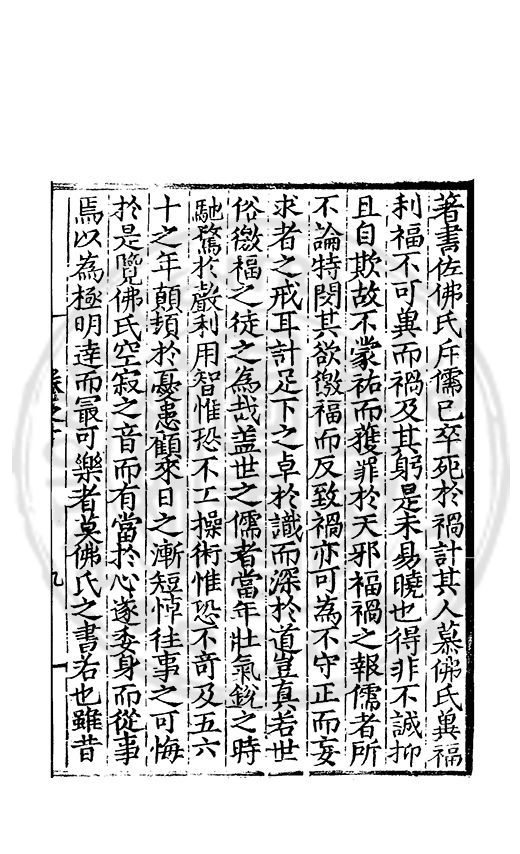 著書佐佛氏斥儒已卒死於禍計其人慕佛氏兾福
利福不可兾而禍及其躬是未易曉也得非不誠抑
且自欺故不蒙祐而獲罪於天邪福禍之報儒者所
不論特閔其欲徼福而反致禍亦可為不守正而妄
求者之戒耳計足下之卓於識而深於道豈真若世
俗徼福之徒之為㢤盖世之儒者當年壯氣銳之時
馳騖於聲利用智惟恐不工操術惟恐不竒及五六
十之年顛頓於憂患顧來日之漸短悼往事之可悔
於是覽佛氏空寂之音而有當於心遂委身而從事
焉以為極明達而最可樂者莫佛氏之書若也雖昔
九